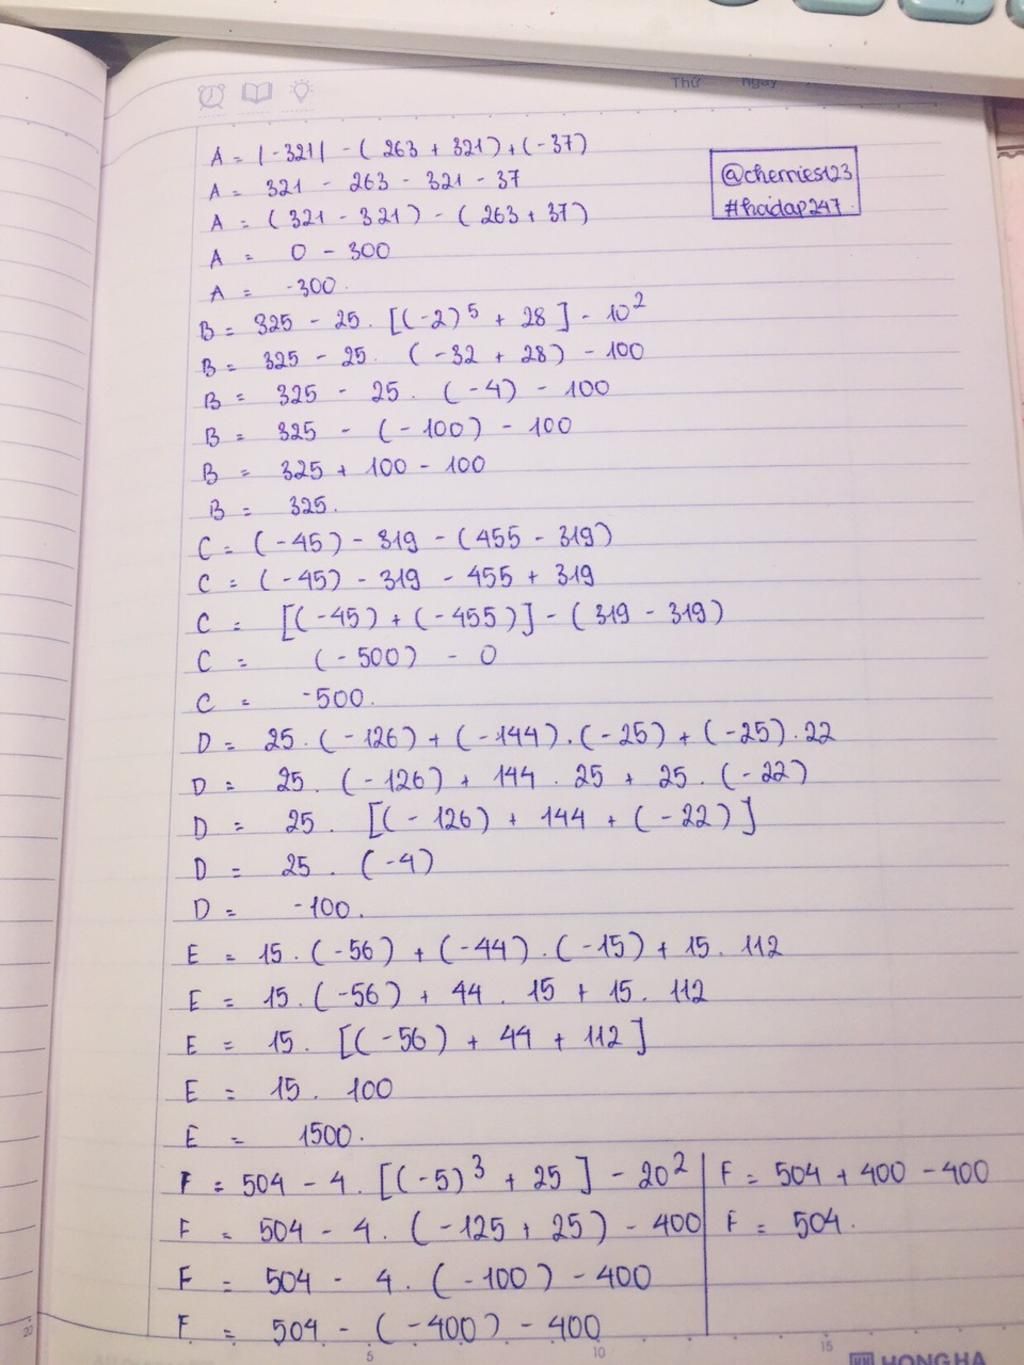 Thứ Ngày
A = |-321| - ( 263 + 321) + (-37)
A = 321 - 263 - 321 - 37
A = (321 - 321) - ( 263 + 37)
A = 0 - 300
A = -300.
@cherries123
#hoidap247.
B = 325 - 25. [(-2)⁵ + 28] - 10²
B = 325 - 25. (-32 + 28) - 100
B = 325 - 25. (-4) - 100
B = 325 - (-100) - 100
B = 325 + 100 - 100
B = 325.
C = (-45) - 319 - (455 - 319)
C = (-45) - 319 - 455 + 319
C = [(-45) + (-455)] - (319 - 319)
C = (-500) - 0
C = -500.
D = 25.(-126) + (-144).(-25) + (-25).22
D = 25. (-126) + 144 . 25 + 25. (-22)
D = 25. [(-126) + 144 + (-22)]
D = 25 . (-4)
D = -100.
E = 15.(-56) + (-44).(-15) + 15. 112
E = 15.(-56) + 44 . 15 + 15. 112
E = 15. [(-56) + 44 + 112]
E = 15. 100
E = 1500.
F = 504 - 4. [(-5)³ + 25] - 20²
F = 504 - 4. (-125 + 25) - 400
F = 504 - 4. (-100) - 400
F = 504 - (-400) - 400
F = 504 + 400 - 400
F = 504.
20
5 10 15
HONG HA